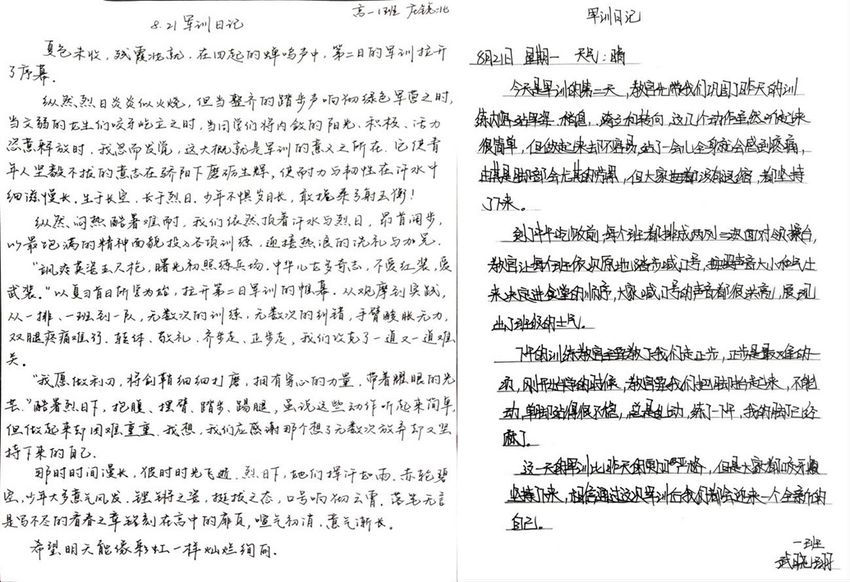 高一1班
8.21军训日记
夏色未收，残霞
在四起的蝉鸣声中，第二日的军训拉开
了序幕。
纵然烈日炎炎似火烧，但当整齐的踏步声响彻绿色军营之时，
当文弱的女生们咬牙屹立之时，当同学们将内敛的阳光、积极、活力
恣意释放时，我思而发觉，这大概就是军训的意义之所在。它使青
年人坚毅不拔的意志在骄阳下磨砺生辉，使耐力与韧性在汗水中
细滋慢长。生于长空、长于烈日，少年不惧岁月长，敢挽桑弓射玉衡！
纵然闷热酷暑难耐，我们依然披着汗水与烈日，昂首阔步，
以最饱满的精神面貌投入各项训练，迎接热浪的洗礼与加冕。
“飒爽英姿五尺枪，曙光初照练兵场，中华儿女多奇志，不爱红装爱
武装。”以夏
拉开第二日军训的帷幕。从观摩到实践，
从一排、一班到一队，无数次的训练，无数次的纠错，手臂酸胀无力，
双腿疼痛难忍。转体、敬礼、齐步走、正步走，我们攻克了一道又一道难
关。
“我愿做利刃，将剑鞘细细打磨，拥有穿心的力量，带着耀眼的光
芒。”酷暑烈日下，把腹、摆臂、踏步、踢腿，虽说这些动作听起来简单，
但做起来却困难重重。我想，我们应感谢那个想了无数次放弃却又坚
持下来的自己。
那时时间漫长，彼时时光飞逝。烈日下，他们挥汗如雨，赤轮碧
空，少年大多意气风发。铿锵之姿，挺拔之态，口号响彻云霄。落笔无言
是写不尽的青春之章镌刻在高中的扉页，喧气初消，意气渐长。
希望明天能像彩虹一样灿烂绚丽。
军训日记
8月21日 星期一 天气：晴
今天是军训的第二天，教官先带我们巩固了昨天的训
练内容站军姿、稍息、跨立和转向，这几个动作虽然听起来
很简单，但做起来却不容易，站了一会儿全身就会感到疼痛，
尤其是脚部会尤其的
，但大家也都没有退缩，都坚持
了下来。
到了中午吃饭前，每个班都排成两列一次面对
，
教官让每个班依次原地踏步喊口号，按照声音大小和气士
来决定进食堂的顺序，大家喊口号的声音都很嘹亮，展现
出了班级的士气。
下午的训练教官主要教了我们走正步，正步是最难的一
项，刚开始
的时候，教官要我们把腿抬起来，不能
动，
总是乱动，练了一下午，我的腿已经
麻了。
这一天的军训比昨天的更加严格，但是大家都咬牙
坚持了下来，相信通过这次军训后我们都会迎来一个全新的
自己。
一班
武晓